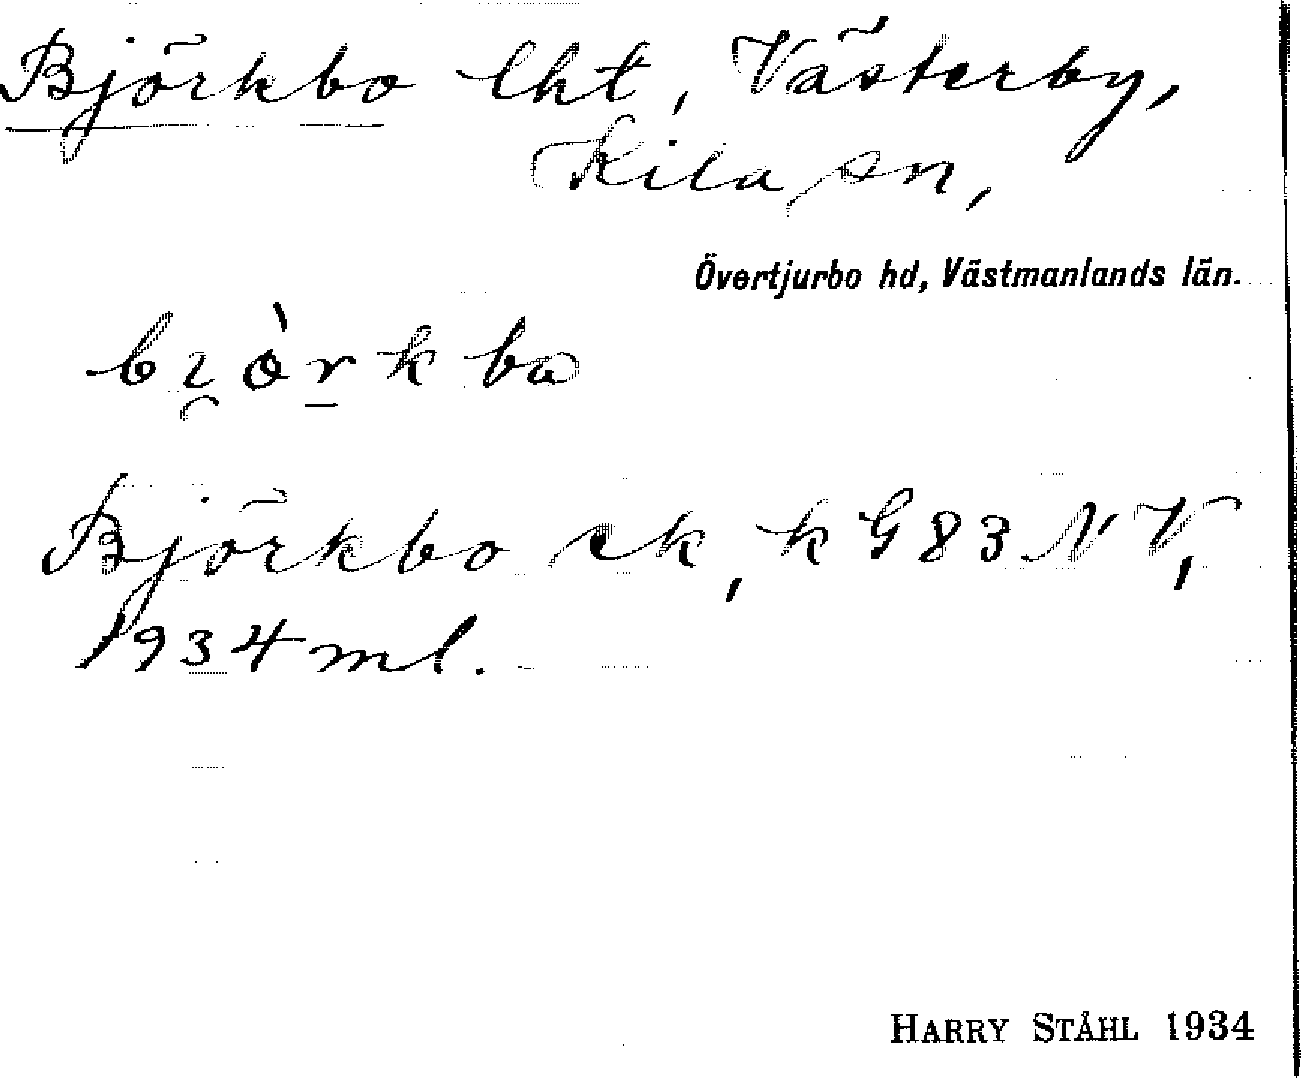 Björkbo lht, Västerby,
Kila sn,
Övertjurbo hd, Västmanlands län.
bi̯òr̠kba
Björkbo ek, k G83 NV,
1934 ml.
HARRY STÅHL 1934